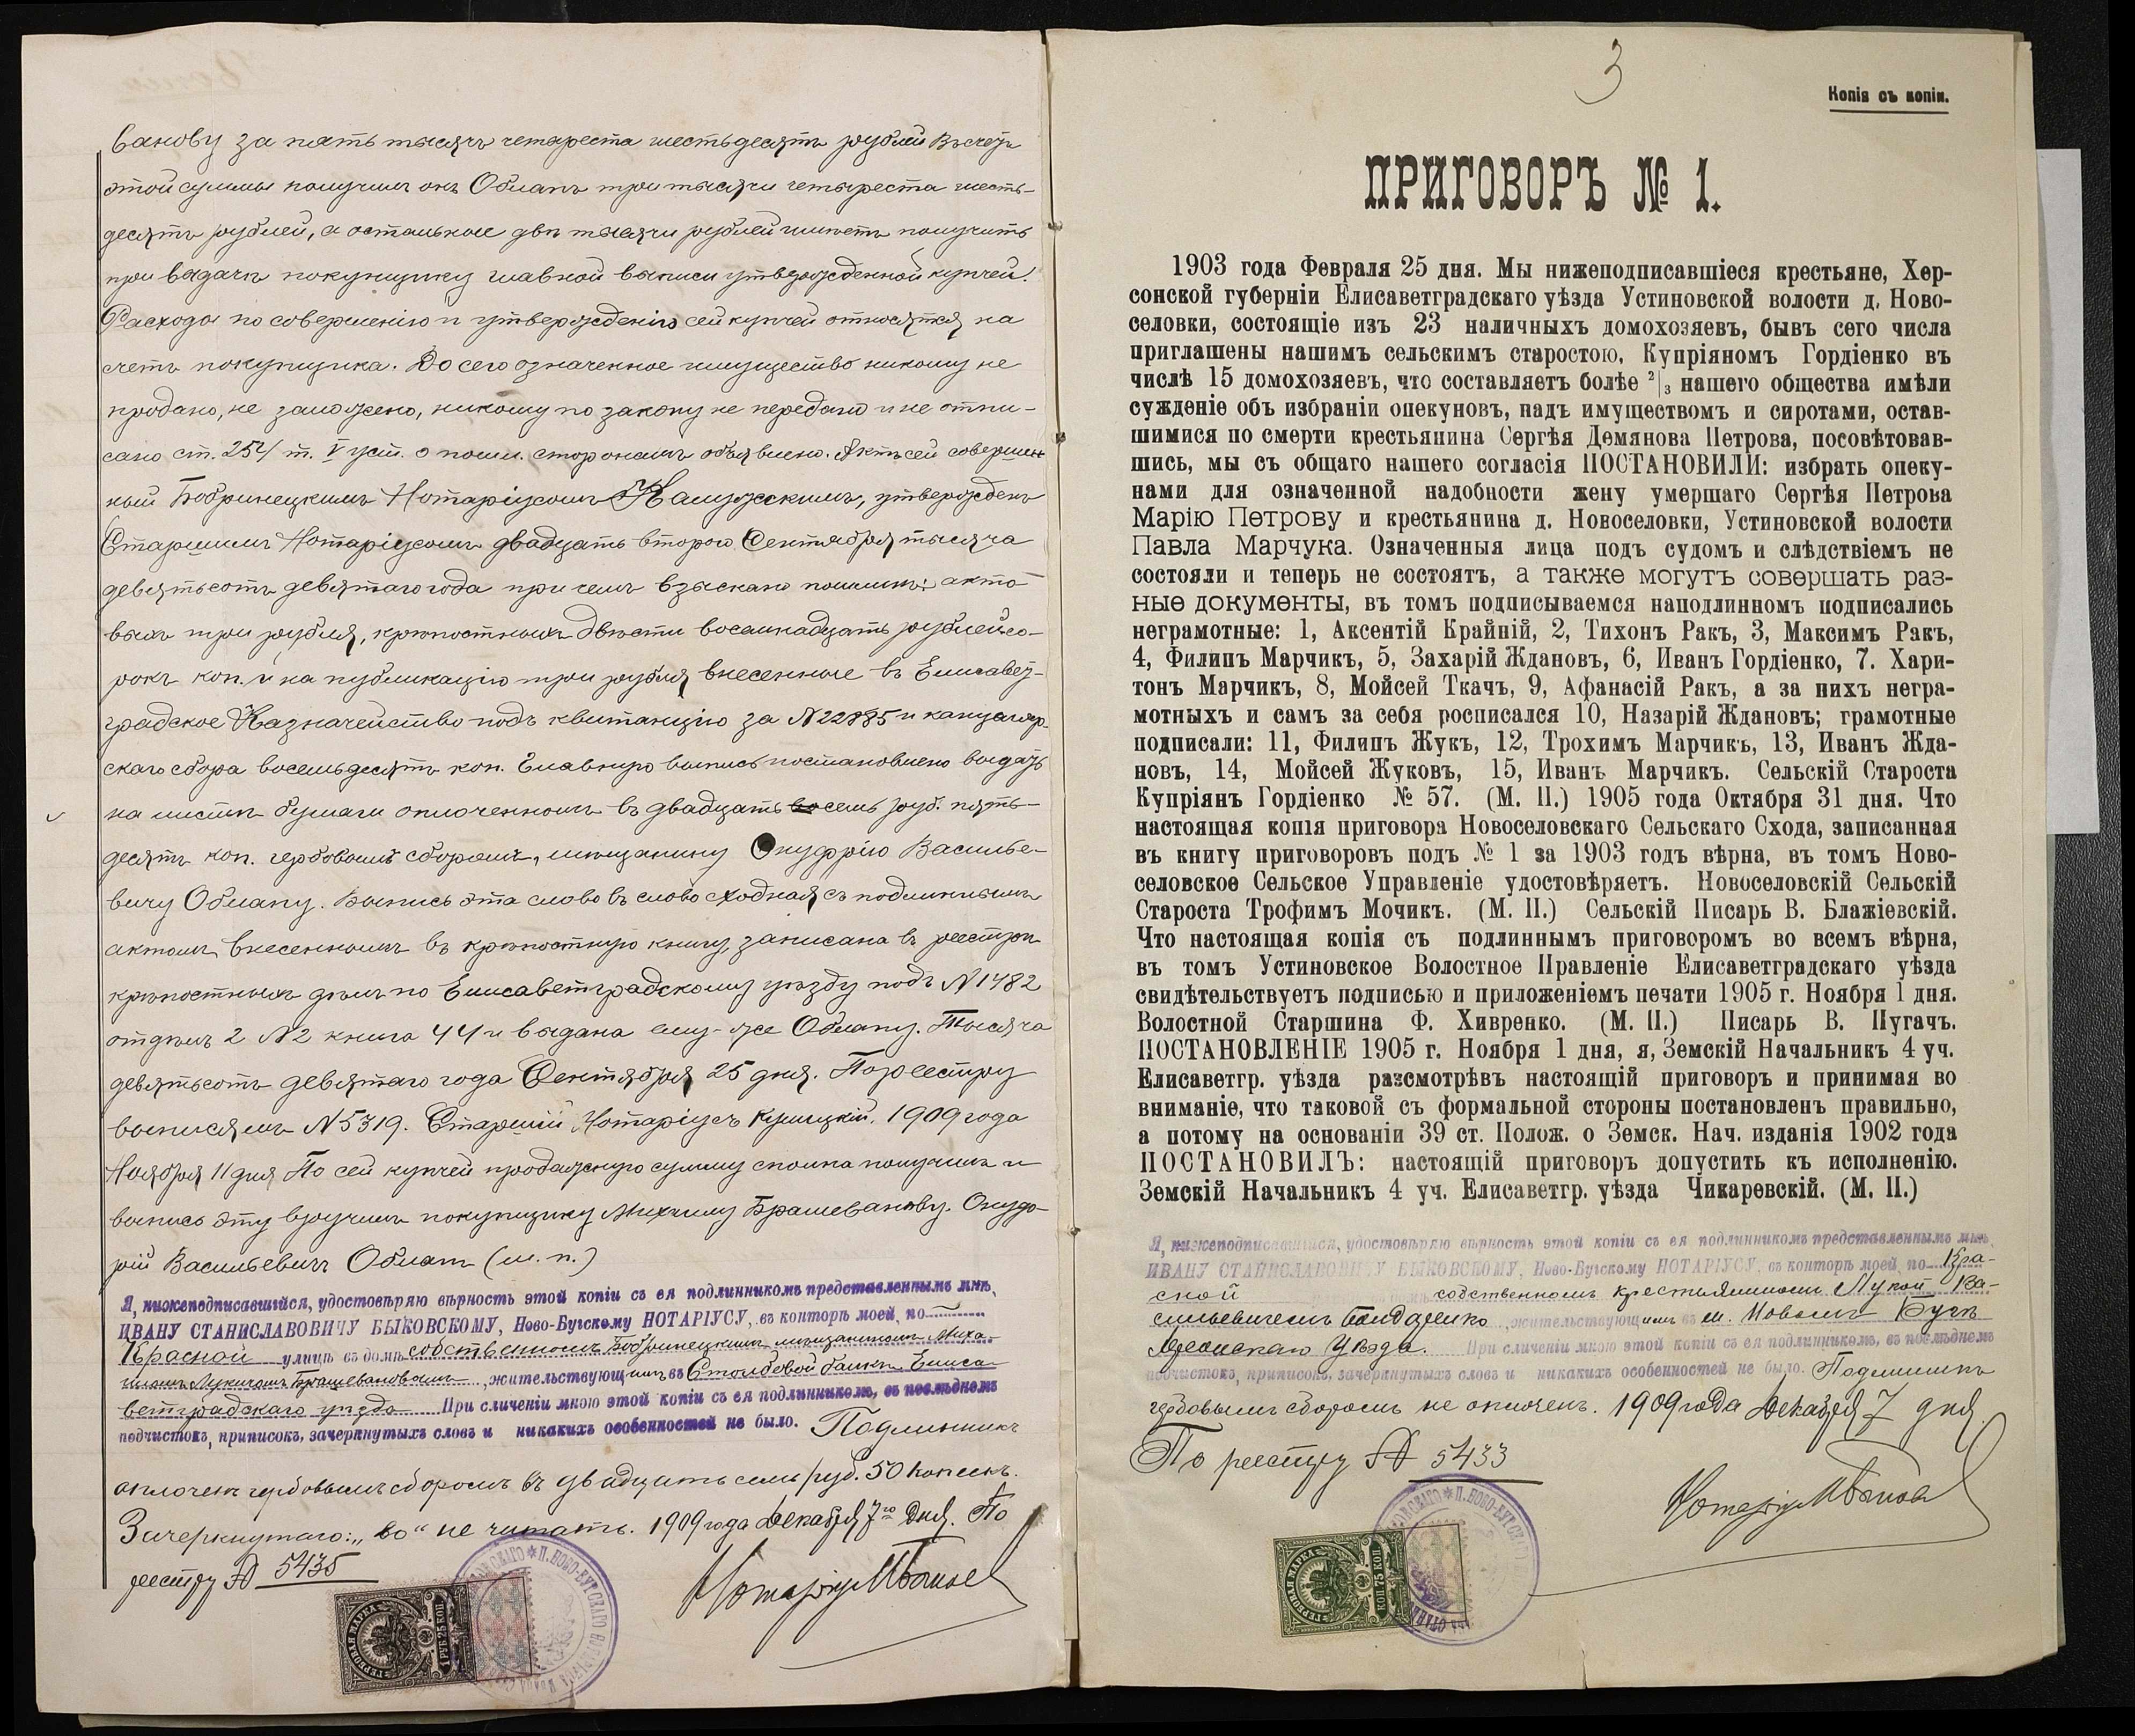 ванову за пять тысячъ четыреста шестьдесятъ рублей Въ счетъ
этой суммы получилъ онъ Обланъ три тысячи четыреста шесть-
десятъ рублей, а остальные двѣ тысячи рублей имѣетъ получить
при выдачѣ покупщику главной выписи утвержденной купчей.
Расходы по совершенію и утвержденію сей купчей относятся на
счетъ покупщика. До сего означенное имущество никому не
продано, не заложено, никому по закону не передано и не отпи-
сано ст. 254 т. V уст. о пошл. сторонамъ объявлено. Актъ сей совершен-
ный Бобринецкимъ Нотаріусомъ утвержденъ
Старшимъ Нотаріусомъ двадцать второго Сентября тысяча
девятьсотъ девятаго года при чемъ взыскано пошлинъ: акто
выхъ три рубля, крѣпостныхъ двѣсти восемнадцать рублей со-
рокъ коп. и на публикацію три рубля внесенные въ Елисавет-
градское Казначейство подъ квитанцію за № 22885 и канцеляр-
скаго сбора восемьдесятъ коп. Главную выпись постановлено выдать
на листѣ бумаги оплоченномъ въ двадцать восемь руб. пять-
десятъ коп. гербовымъ сборомъ, мѣщанину Онуфрію Василье-
вичу Облану. Выпись эта слово въ слово сходная съ подлиннымъ
актомъ, внесеннымъ въ крѣпостную книгу, записана въ реестрѣ
крѣпостныхъ дѣлъ по Елисаветградскому уѣзду подъ № 1482
отдѣлъ 2 № 2 книга 44 и выдана ему-же Облану. Тысяча
девятьсотъ девятаго года Сентября 25 дня. По реестру
выписямъ № 5319. Старшій Нотаріусъ 1909 года
Ноября 11 дня По сей купчей продажную сумму сполна получилъ и
выпись эту вручилъ покупщику Михаилу Брашеванову. Онуф-
рій Васильевичъ Обланъ (м. п.)
Я, нижеподписавшійся, удостовѣряю вѣрность этой копіи съ ея подлинникомъ представленнымъ мнѣ,
ИВАНУ СТАНИСЛАВОВИЧУ БЫКОВСКОМУ, Ново-Бугскому НОТАРІУСУ, въ конторѣ моей, по
Красной улицѣ въ домѣ собственномъ Бобринецкимъ мѣщаниномъ Миха-
иломъ Лукичомъ Брашевановымъ, жительствующимъ въ Столбовой балкѣ Елиса
ветградскаго уѣзда При сличеніи мною этой копіи съ ея подлинникомъ, въ послѣднемъ
подчистокъ, приписокъ, зачеркнутыхъ словъ и никакихъ особенностей не было. Подлинникъ
оплоченъ гербовымъ сборомъ въ двадцать семь руб. 50 копѣекъ.
Зачеркнутаго: „во“ не читать. 1909 года Декабря 7го Дня. По
реестру № 5435
Нотаріусъ
ГЕРБОВАЯ МАРКА
1 РУБ 25 КОП
3
Копія съ копіи.
ПРИГОВОРЪ № 1.
1903 года Февраля 25 дня. Мы нижеподписавшіеся крестьяне, Хер-
сонской губерніи Елисаветградскаго уѣзда Устиновской волости д. Ново-
селовки, состоящіе изъ 23 наличныхъ домохозяевъ, бывъ сего числа
приглашены нашимъ сельскимъ старостою, Купріяномъ Гордіенко въ
числѣ 15 домохозяевъ, что составляетъ болѣе 2|3 нашего общества имѣли
сужденіе объ избраніи опекуновъ, надъ имуществомъ и сиротами, остав-
шимися по смерти крестьянина Сергѣя Демянова Петрова, посовѣтовав-
шись, мы съ общаго нашего согласія ПОСТАНОВИЛИ: избрать опеку-
нами для означенной надобности жену умершаго Сергѣя Петрова
Марію Петрову и крестьянина д. Новоселовки, Устиновской волости
Павла Марчука. Означенныя лица подъ судомъ и слѣдствіемъ не
состояли и теперь не состоятъ, а также могутъ совершать раз-
ные документы, въ томъ подписываемся наподлинномъ подписались
неграмотные: 1, Аксентій Крайній, 2, Тихонъ Ракъ, 3, Максимъ Ракъ,
4, Филипъ Марчикъ, 5, Захарій Ждановъ, 6, Иванъ Гордіенко, 7. Хари-
тонъ Марчикъ, 8, Мойсей Ткачъ, 9, Афанасій Ракъ, а за нихъ негра-
мотныхъ и самъ за себя росписался 10, Назарій Ждановъ; грамотные
подписали: 11, Филипъ Жукъ, 12, Трохимъ Марчикъ, 13, Иванъ Жда-
новъ, 14, Мойсей Жуковъ, 15, Иванъ Марчикъ. Сельскій Староста
Купріянъ Гордіенко № 57. (М. П.) 1905 года Октября 31 дня. Что
настоящая копія приговора Новоселовскаго Сельскаго Схода, записанная
въ книгу приговоровъ подъ № 1 за 1903 годъ вѣрна, въ томъ Ново-
селовское Сельское Управленіе удостовѣряетъ. Новоселовскій Сельскій
Староста Трофимъ Мочикъ. (М. П.) Сельскій Писарь В. Блажіевскій.
Что настоящая копія съ подлиннымъ приговоромъ во всемъ вѣрна,
въ томъ Устиновское Волостное Правленіе Елисаветградскаго уѣзда
свидѣтельствуетъ подписью и приложеніемъ печати 1905 г. Ноября 1 дня.
Волостной Старшина Ф. Хивренко. (М. П.) Писарь В. Пугачъ.
ПОСТАНОВЛЕНІЕ 1905 г. Ноября 1 дня, я, Земскій Начальникъ 4 уч.
Елисаветгр. уѣзда разсмотрѣвъ настоящій приговоръ и принимая во
вниманіе, что таковой съ формальной стороны постановленъ правильно,
а потому на основаніи 39 ст. Полож. о Земск. Нач. изданія 1902 года
ПОСТАНОВИЛЪ: настоящій приговоръ допустить къ исполненію.
Земскій Начальникъ 4 уч. Елисаветгр. уѣзда Чикаревскій. (М. П.)
Я, нижеподписавшійся, удостовѣряю вѣрность этой копіи съ ея подлинникомъ представленнымъ мнѣ,
ИВАНУ СТАНИСЛАВОВИЧУ БЫКОВСКОМУ, Ново-Бугскому НОТАРІУСУ, въ конторѣ моей, по Кра-
сной собственномъ крестьяниномъ Лукой Ва-
сильевичемъ Бондаренко, жительствующимъ въ м. Новомъ Бугѣ
уѣзда. При сличеніи мною этой копіи съ ея подлинникомъ, въ послѣднемъ
подчистокъ, приписокъ, зачеркнутыхъ словъ и никакихъ особенностей не было. Подлинникъ
гербовымъ сборомъ не оплоченъ. 1909 года Декабря 7 дня.
По реестру № 5433
Нотаріусъ
ГЕРБОВАЯ МАРКА
КОП 75 КОП